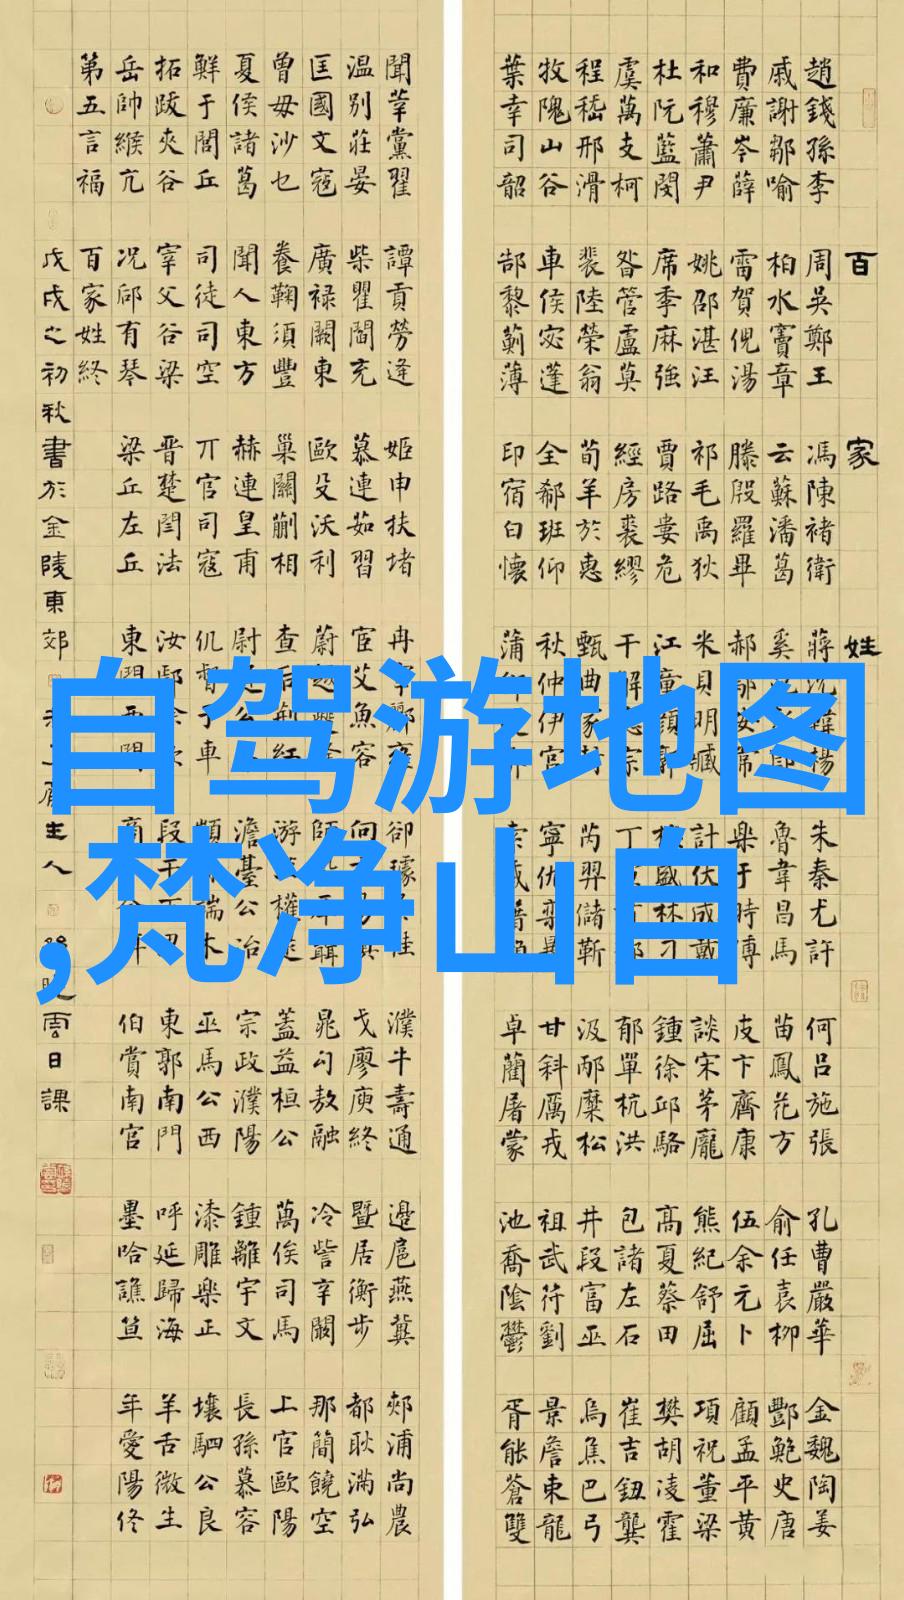 百家姓
趙錢孫李 周吳鄭王 馮陳褚衛 蔣沈韓楊 朱秦尤許 何呂施張 孔曹嚴華 金魏陶姜
戚謝鄒喻 柏水竇章 云蘇潘葛 奚郎 魯韋昌馬 苗鳳花方 俞任袁柳 酆鮑史唐
費廉岑薛 雷賀倪湯 滕殷羅畢 郝鄔安常 樂于時傅 皮卞齊康 伍余元卜 顧孟平黃
和穆蕭尹 姚邵湛汪 祁毛禹狄 米貝明臧 計伏成戴 談宋茅龐 熊紀舒屈 項祝董梁
杜阮藍閔 席季麻強 賈路婁危 江童顏郭 盛林刁 鍾徐邱駱 高夏蔡田 樊胡凌霍
虞萬支柯 昝管盧莫 經房裘繆 干解宗 丁 郁單杭洪 包諸左石 崔吉鈕龔
程嵇邢滑 裴陸榮翁 荀羊於惠 甄曲家封 芮羿儲靳 汲邴糜松 井段富巫 烏焦巴弓
牧隗山谷 車侯宓蓬 全郗班仰 秋仲伊宮 寧仇欒暴 甘斜厲戎 祖武符劉 景詹束龍
葉幸司韶 郜黎薊薄 印宿白懷 蒲 索咸籍 卓藺屠蒙 池喬陰鬱 胥能蒼雙
聞莘黨翟 譚貢勞逄 姬申扶堵 冉宰酈雍 卻璩桂 濮牛壽通 邊扈燕冀 郟浦尚農
温別莊晏 柴瞿閻充 慕連茹習 宦艾魚容 向 戈廖庾終 暨居衡步 都耿滿弘
匡國文寇 廣祿闕東 歐殳沃利 蔚越夔隆 師聶 晁勾敖融 冷訾辛闞 那簡饒空
曾毋沙乜 養鞠須豐 巢關蒯相 查后荊紅 游權逯 蓋益桓公 萬俟司馬 上官歐陽
夏侯諸葛 聞人東方 赫連皇甫 尉公 澹臺公冶 宗政濮陽 鍾離宇文 長孫慕容
鮮于閭丘 司徒司空 亓官司寇 仉督子車 顓端木 巫馬公西 漆雕樂正 壤駟公良
拓跋夾谷 宰父谷梁 晉楚閆法 汝鄢 段干 東郭南門 呼延歸海 羊舌微生
岳帥緱亢 況郈有琴 梁丘左丘 東門西門 商 伯賞南宮 墨哈譙笪 年愛陽佟
第五言福 百家姓終
戊戌之初秋書於金陵東郊 主人 晚雲日課
自驾游地图
,梵净山自